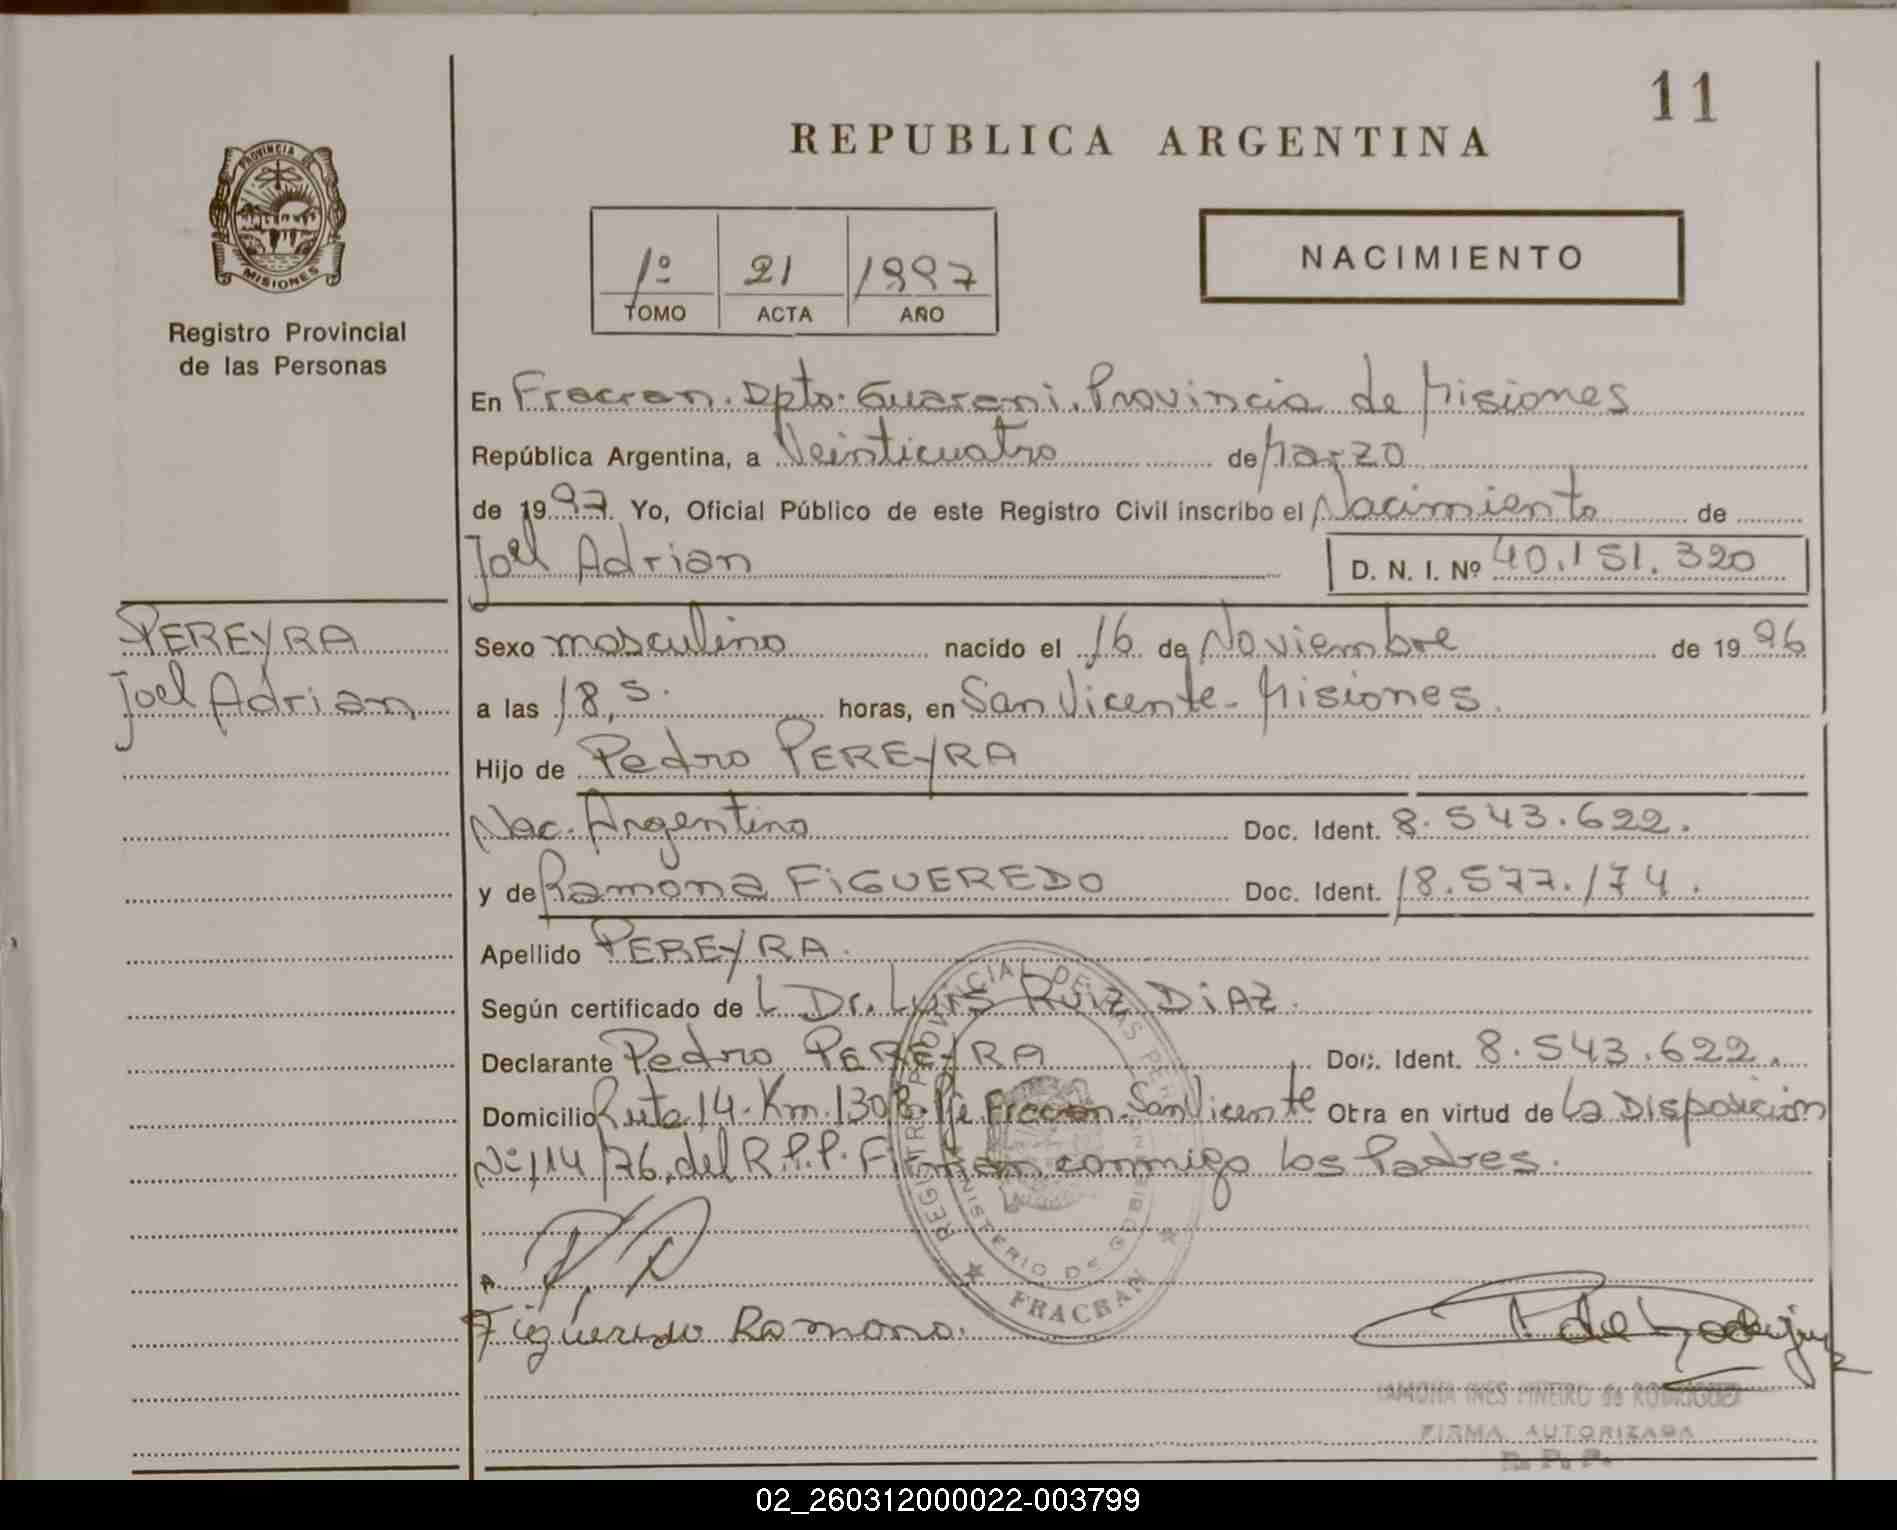 11
REPUBLICA ARGENTINA
PROVINCIA DE
MISIONES
Registro Provincial
de las Personas
1º 21 1997
TOMO ACTA AÑO
NACIMIENTO
En Fracran. Dpto. Guarani. Provincia de Misiones
República Argentina, a Veinticuatro de Marzo
de 1997. Yo, Oficial Público de este Registro Civil inscribo el Nacimiento de
Joel Adrian D. N. I. Nº 40.151.320
PEREYRA
Joel Adrian
Sexo masculino nacido el 16 de Noviembre de 1996
a las 18,5. horas, en San Vicente - Misiones.
Hijo de Pedro PEREYRA
Nac. Argentino Doc. Ident. 8.543.622.
y de Ramona FiGUEREDO Doc. Ident. 18.577.174.
Apellido PEREYRA.
Según certificado de L Dr. Luis Ruiz DiAZ.
Declarante Pedro PEREYRA Doc. Ident. 8.543.622.
Domicilio Ruta 14. Km. 1308. Fracran. San Vicente Otra en virtud de La Disposición
Nº 114/76, del R.P.P. Firman conmigo los Padres.
REGISTRO PROVINCIAL DE LAS PERSONAS
MINISTERIO DE GOBIERNO
FRACRAN
Figueredo Ramona.
RAMONA INES PIÑEIRO de RODRIGUEZ
FIRMA AUTORIZADA
R. P. P.
02_260312000022-003799